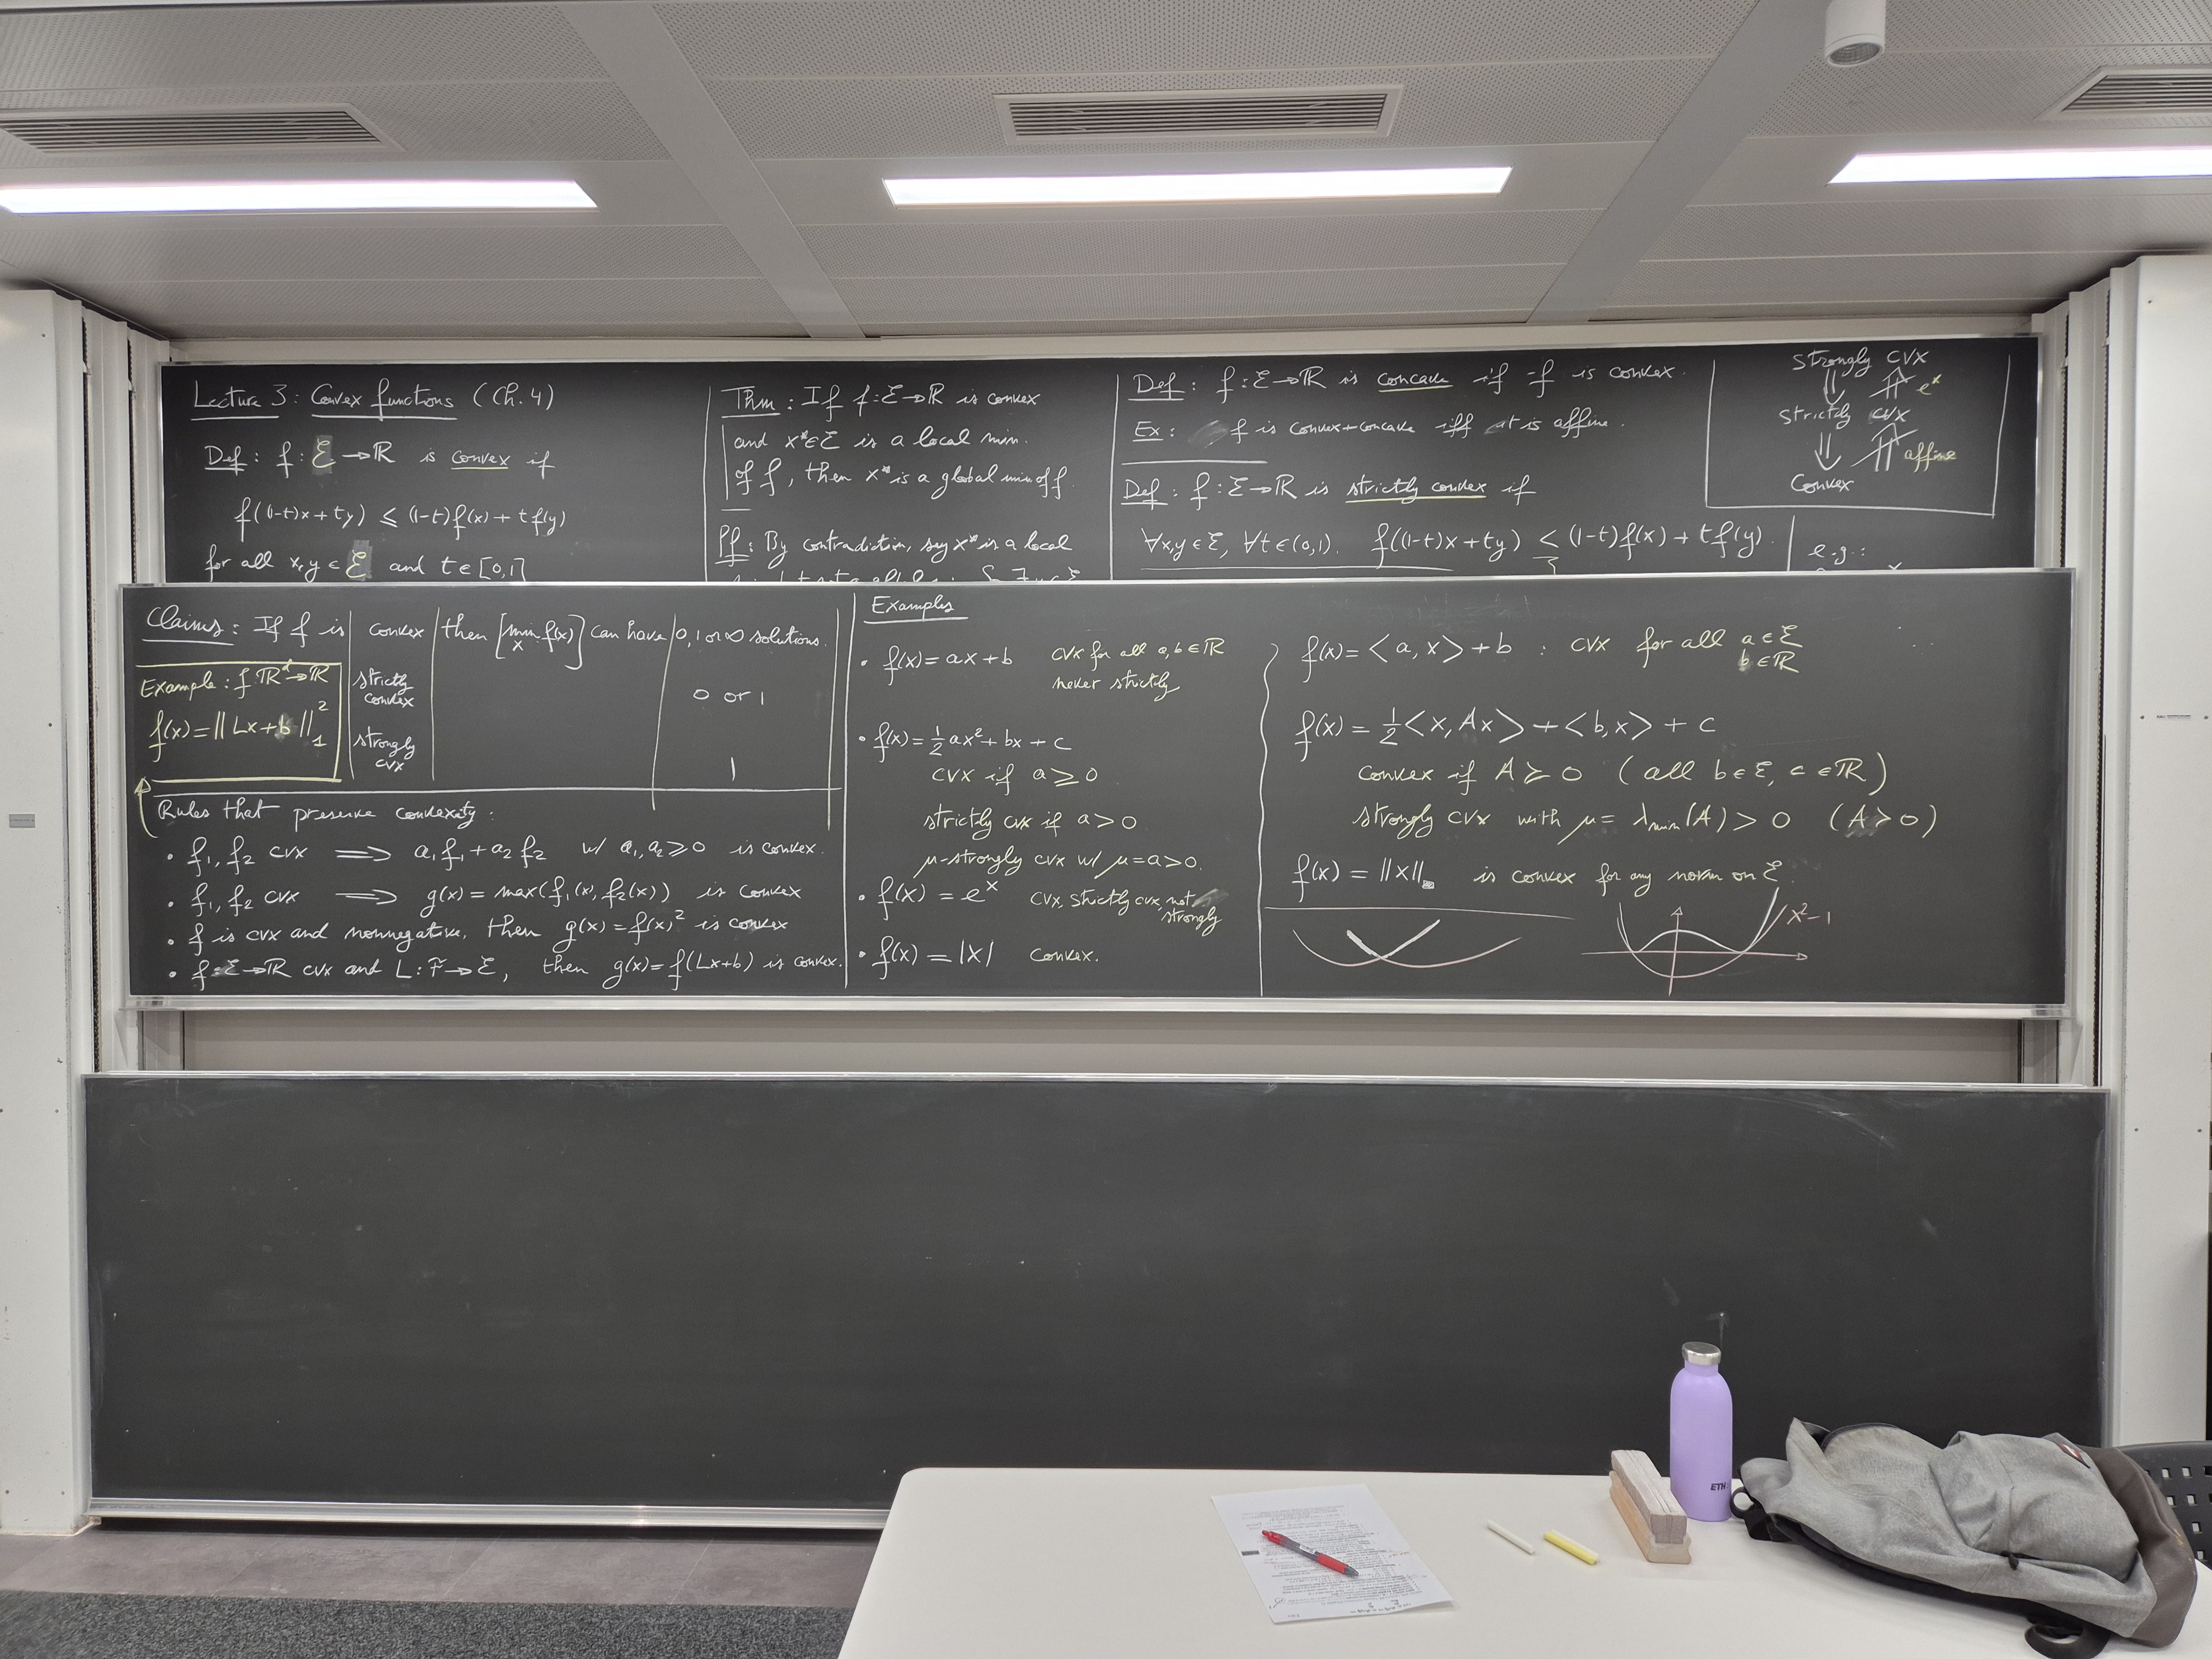 Lecture 3: Convex functions (Ch. 4)
Def: f: ℰ → ℝ is convex if
f((1-t)x + ty) ≤ (1-t)f(x) + t f(y)
for all x, y ∈ ℰ and t ∈ [0,1]
Thm: If f: ℰ → ℝ is convex
and x* ∈ ℰ is a local min.
of f, then x* is a global min of f.
Pf: By contradiction, say x* is a local
Def: f: ℰ → ℝ is concave if -f is convex.
Ex: f is convex+concave iff it is affine.
Def: f: ℰ → ℝ is strictly convex if
∀x,y ∈ ℰ, ∀t ∈ (0,1). f((1-t)x + ty) < (1-t)f(x) + t f(y).
e.g.:
strongly cvx
⇓ ⇑ eˣ
strictly cvx
⇓ ⇑ affine
Convex
Claims: If f is | convex | then [min_x f(x)] can have | 0, 1 or ∞ solutions.
strictly convex | 0 or 1
strongly cvx | 1
Example: f: ℝᵈ → ℝ
f(x) = ‖Lx + b‖₁²
Rules that preserve convexity:
• f₁, f₂ cvx ⟹ a₁f₁ + a₂f₂ w/ a₁, a₂ ≥ 0 is convex.
• f₁, f₂ cvx ⟹ g(x) = max(f₁(x), f₂(x)) is convex
• f is cvx and nonnegative, then g(x) = f(x)² is convex
• f: ℰ → ℝ cvx and L: F → ℰ, then g(x) = f(Lx+b) is convex.
Examples
• f(x) = ax + b cvx for all a, b ∈ ℝ
never strictly
• f(x) = ½ax² + bx + c
cvx if a ≥ 0
strictly cvx if a > 0
μ-strongly cvx w/ μ = a > 0.
• f(x) = eˣ cvx, strictly cvx, not strongly
• f(x) = |x| convex.
f(x) = <a, x> + b : cvx for all a ∈ ℰ
b ∈ ℝ
f(x) = ½<x, Ax> + <b, x> + c
convex if A ≽ 0 (all b ∈ ℰ, c ∈ ℝ)
strongly cvx with μ = λmin(A) > 0 (A ≻ 0)
f(x) = ‖x‖ is convex for any norm on ℰ.
x² - 1
ETH